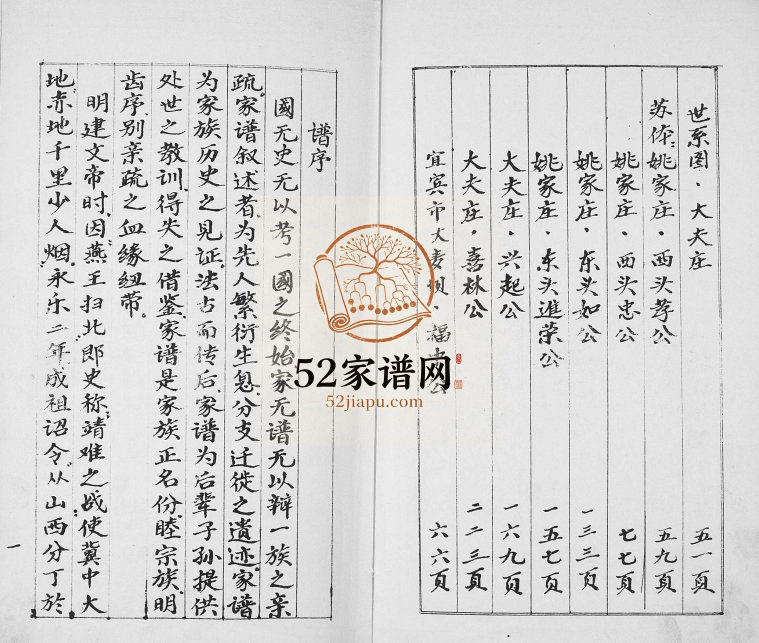 世系图·大夫庄 五一頁
苏俫:姚家庄·西头孝公 五九頁
姚家庄·西头忠公 七七頁
姚家庄·东头如公 一三三頁
姚家庄·东头進荣公 一五七頁
大夫庄·兴起公 一六九頁
大夫庄·喜林公 二二三頁
宜宾市大麦坝·福 公 六六頁
谱序
國无史无以考一國之终始家无谱无以辩一族之亲
疏家谱叙述者为先人繁衍生息分支迁徙之遗迹家谱
为家族历史之见证法古而传后家谱为后辈子孙提供
处世之教训得失之借鉴家谱是家族正名份睦宗族明
齿序别亲疏之血缘纽带。
明建文帝时因燕王扫北郎史称:靖难之战使冀中大
地"赤地千里少人烟"永乐二年成祖诏令"从山西分丁於
一
52家谱网
52jiapu.com